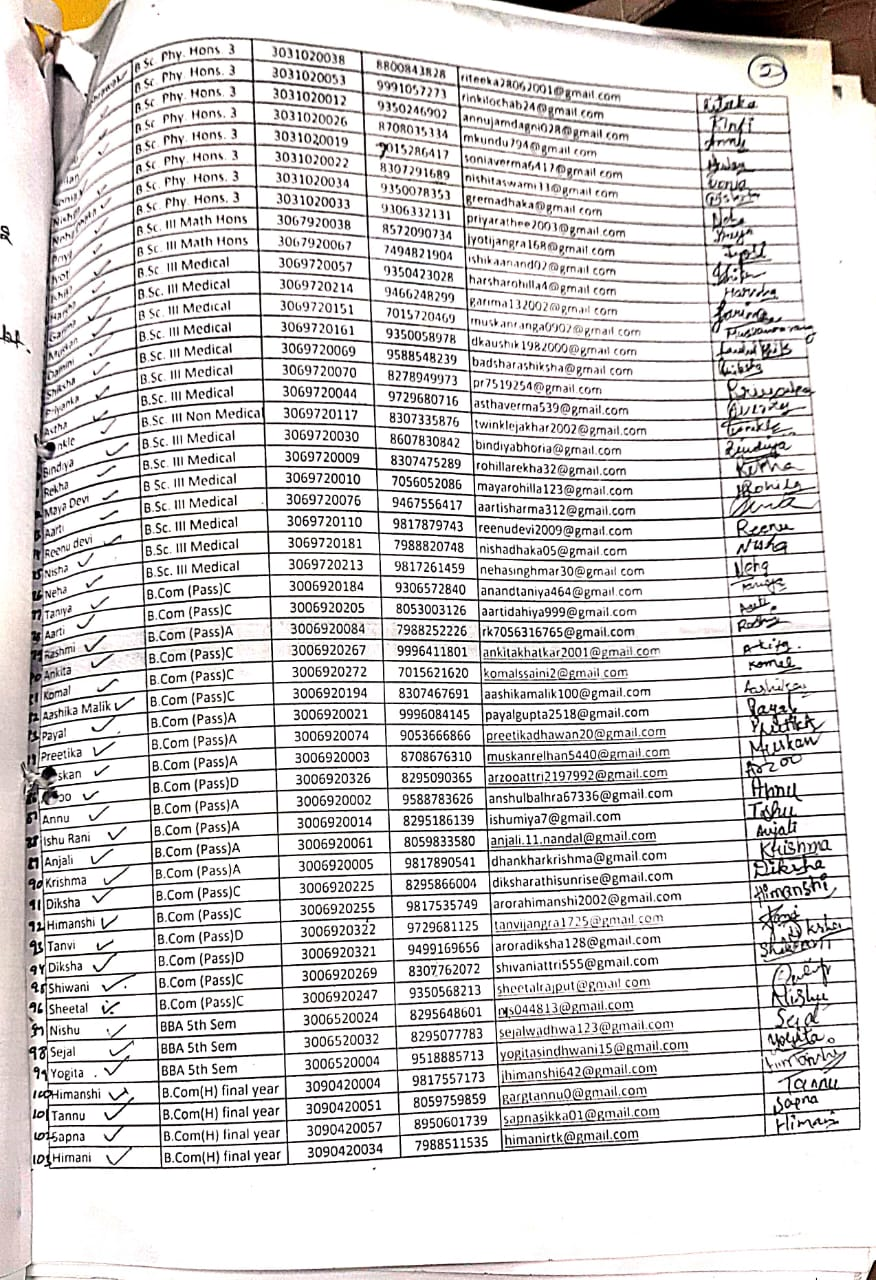 2
B.Sc. Phy. Hons. 3 3031020038 8800843828 riteeka28062001@gmail.com Ritika
B.Sc Phy. Hons. 3 3031020053 9991057273 rinkilochab24@gmail.com Rinki
B.Sc Phy. Hons. 3 3031020012 9350246902 annujamdagni028@gmail.com Annu
B.Sc Phy. Hons. 3 3031020026 8708035334 mkundu794@gmail.com
B.Sc Phy. Hons. 3 3031020019 9015286417 soniaverma6417@gmail.com Sonia
B.Sc Phy. Hons. 3 3031020022 8307291689 nishitaswami11@gmail.com
B.Sc. Phy. Hons. 3 3031020034 9350078353 gremadhaka@gmail.com Neha
Priya B.Sc. Phy. Hons. 3 3031020033 9306332131 priyarathee2003@gmail.com Priya
Jyoti B.Sc. III Math Hons 3067920038 8572090734 jyotijangra168@gmail.com Jyoti
B.Sc. III Math Hons 3067920067 7494821904 ishikaanand02@gmail.com
B.Sc. III Medical 3069720057 9350423028 harsharohilla4@gmail.com
Garima B.Sc. III Medical 3069720214 9466248299 garima132002@gmail.com Garima
Muskan B.Sc. III Medical 3069720151 7015720469 muskanranga0902@gmail.com
B.Sc. III Medical 3069720161 9350058978 dkaushik1982000@gmail.com
Shiksha B.Sc. III Medical 3069720069 9588548239 badsharashiksha@gmail.com
Priyanka B.Sc. III Medical 3069720070 8278949973 pr7519254@gmail.com Priyanka
Astha B.Sc. III Medical 3069720044 9729680716 asthaverma539@gmail.com
nkle B.Sc. III Non Medical 3069720117 8307335876 twinklejakhar2002@gmail.com Twinkle
Bindiya B.Sc. III Medical 3069720030 8607830842 bindiyabhoria@gmail.com Bindiya
Rekha B.Sc. III Medical 3069720009 8307475289 rohillarekha32@gmail.com Rekha
Maya Devi B.Sc. III Medical 3069720010 7056052086 mayarohilla123@gmail.com
Aarti B.Sc. III Medical 3069720076 9467556417 aartisharma312@gmail.com
Reenu devi B.Sc. III Medical 3069720110 9817879743 reenudevi2009@gmail.com Reenu
Nisha B.Sc. III Medical 3069720181 7988820748 nishadhaka05@gmail.com Nisha
Neha B.Sc. III Medical 3069720213 9817261459 nehasinghmar30@gmail.com Neha
Taniya B.Com (Pass)C 3006920184 9306572840 anandtaniya464@gmail.com Taniya
Aarti B.Com (Pass)C 3006920205 8053003126 aartidahiya999@gmail.com Aarti
Rashmi B.Com (Pass)A 3006920084 7988252226 rk7056316765@gmail.com
Ankita B.Com (Pass)C 3006920267 9996411801 ankitakhatkar2001@gmail.com Ankita
Komal B.Com (Pass)C 3006920272 7015621620 komalssaini2@gmail.com Komal
Aashika Malik B.Com (Pass)C 3006920194 8307467691 aashikamalik100@gmail.com Aashika
Payal B.Com (Pass)A 3006920021 9996084145 payalgupta2518@gmail.com Payal
Preetika B.Com (Pass)A 3006920074 9053666866 preetikadhawan20@gmail.com
skan B.Com (Pass)A 3006920003 8708676310 muskanrelhan5440@gmail.com Muskan
oo B.Com (Pass)D 3006920326 8295090365 arzooattri2197992@gmail.com Arzoo
Annu B.Com (Pass)A 3006920002 9588783626 anshulbalhra67336@gmail.com Annu
88 Ishu Rani B.Com (Pass)A 3006920014 8295186139 ishumiya7@gmail.com Ishu
89 Anjali B.Com (Pass)A 3006920061 8059833580 anjali.11.nandal@gmail.com Anjali
90 Krishma B.Com (Pass)A 3006920005 9817890541 dhankharkrishma@gmail.com Krishma
91 Diksha B.Com (Pass)C 3006920225 8295866004 diksharathisunrise@gmail.com Diksha
92 Himanshi B.Com (Pass)C 3006920255 9817535749 arorahimanshi2002@gmail.com Himanshi
93 Tanvi B.Com (Pass)D 3006920322 9729681125 tanvijangra1725@gmail.com
94 Diksha B.Com (Pass)D 3006920321 9499169656 aroradiksha128@gmail.com Diksha
95 Shiwani B.Com (Pass)C 3006920269 8307762072 shivaniattri555@gmail.com
96 Sheetal B.Com (Pass)C 3006920247 9350568213 sheetalrajput@gmail.com
97 Nishu BBA 5th Sem 3006520024 8295648601 njs044813@gmail.com Nishu
98 Sejal BBA 5th Sem 3006520032 8295077783 sejalwadhwa123@gmail.com Sejal
99 Yogita BBA 5th Sem 3006520004 9518885713 yogitasindhwani15@gmail.com Yogita
100 Himanshi B.Com(H) final year 3090420004 9817557173 jhimanshi642@gmail.com Himanshi
101 Tannu B.Com(H) final year 3090420051 8059759859 gargtannu0@gmail.com Tannu
102 Sapna B.Com(H) final year 3090420057 8950601739 sapnasikka01@gmail.com Sapna
103 Himani B.Com(H) final year 3090420034 7988511535 himanirtk@gmail.com Himani